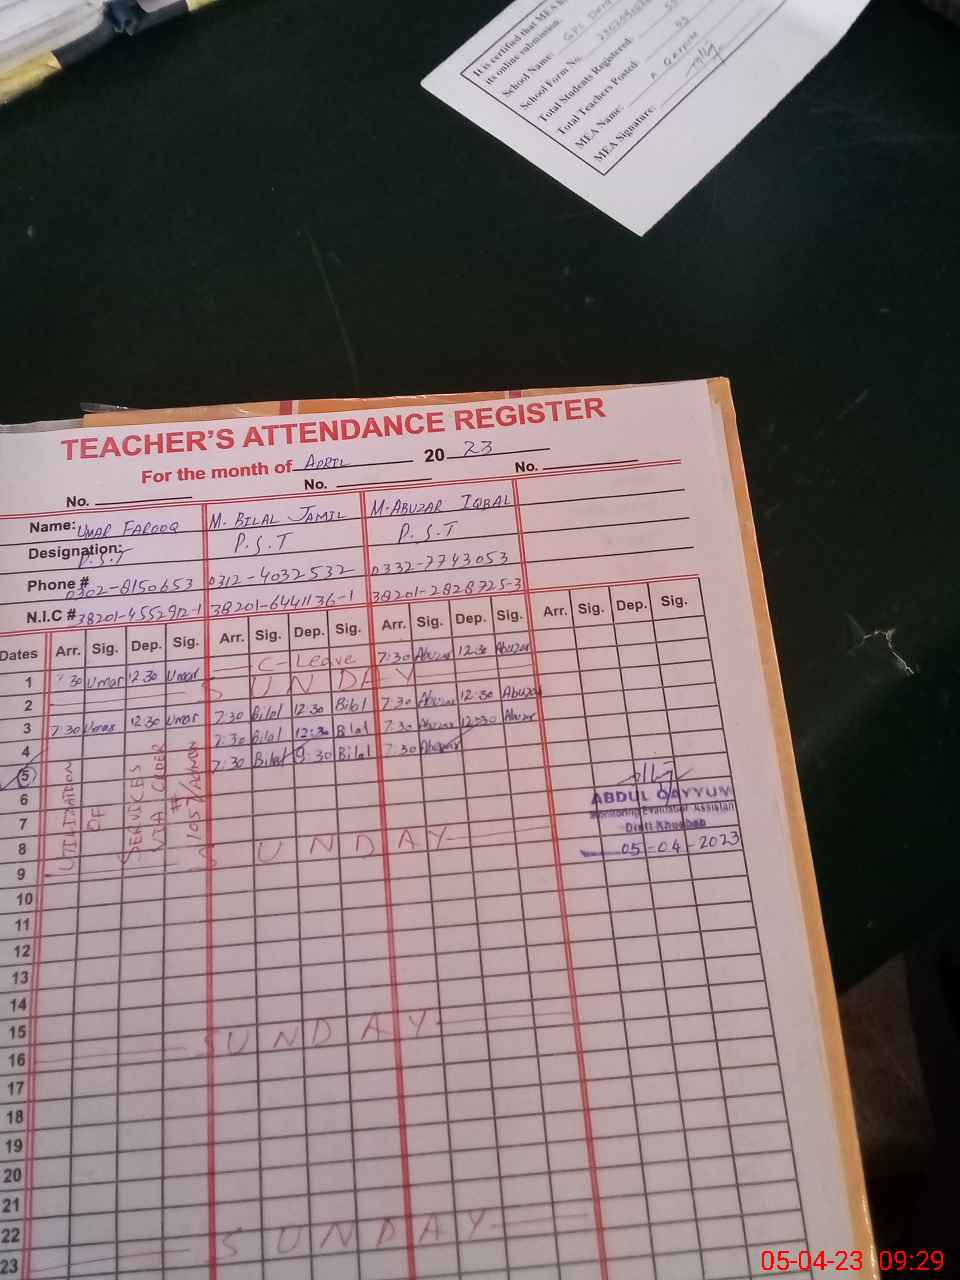 It is certified that MEA
its online submission.
School Name: GPS
School Form No.
Total Students Registered:
Total Teachers Posted: 03
MEA Name: A. QAYYUM
MEA Signature:
TEACHER'S ATTENDANCE REGISTER
For the month of APRIL 2023
No. No. No.
Name: UMAR FAROOQ M. BILAL JAMIL M. ABUZAR IQBAL
Designation: P.S.T P.S.T P.S.T
Phone # 0302-8150653 0312-4032532 0332-7743053
N.I.C # 38201-4552912-1 38201-6441136-1 38201-2828725-3
Dates Arr. Sig. Dep. Sig. Arr. Sig. Dep. Sig. Arr. Sig. Dep. Sig. Arr. Sig. Dep. Sig.
1 7:30 Umar 12:30 Umar C-Leave 7:30 Abuzar 12:30 Abuzar
2 SUNDAY
3 7:30 Umar 12:30 Umar 7:30 Bilal 12:30 Bilal 7:30 Abuzar 12:30 Abuzar
4 7:30 Bilal 12:30 Bilal 7:30 Abuzar 12:30 Abuzar
5 7:30 Bilal 9:30 Bilal 7:30 Abuzar
UTILIZATION
OF
SERVICES
VIA ORDER
#
1057/ADMN
6
7
8
9 SUNDAY
ABDUL QAYYUM
Monitoring Evaluation Assistan
Distt Khushab
05-04-2023
10
11
12
13
14
15
16 SUNDAY
17
18
19
20
21
22
23 SUNDAY
05-04-23 09:29